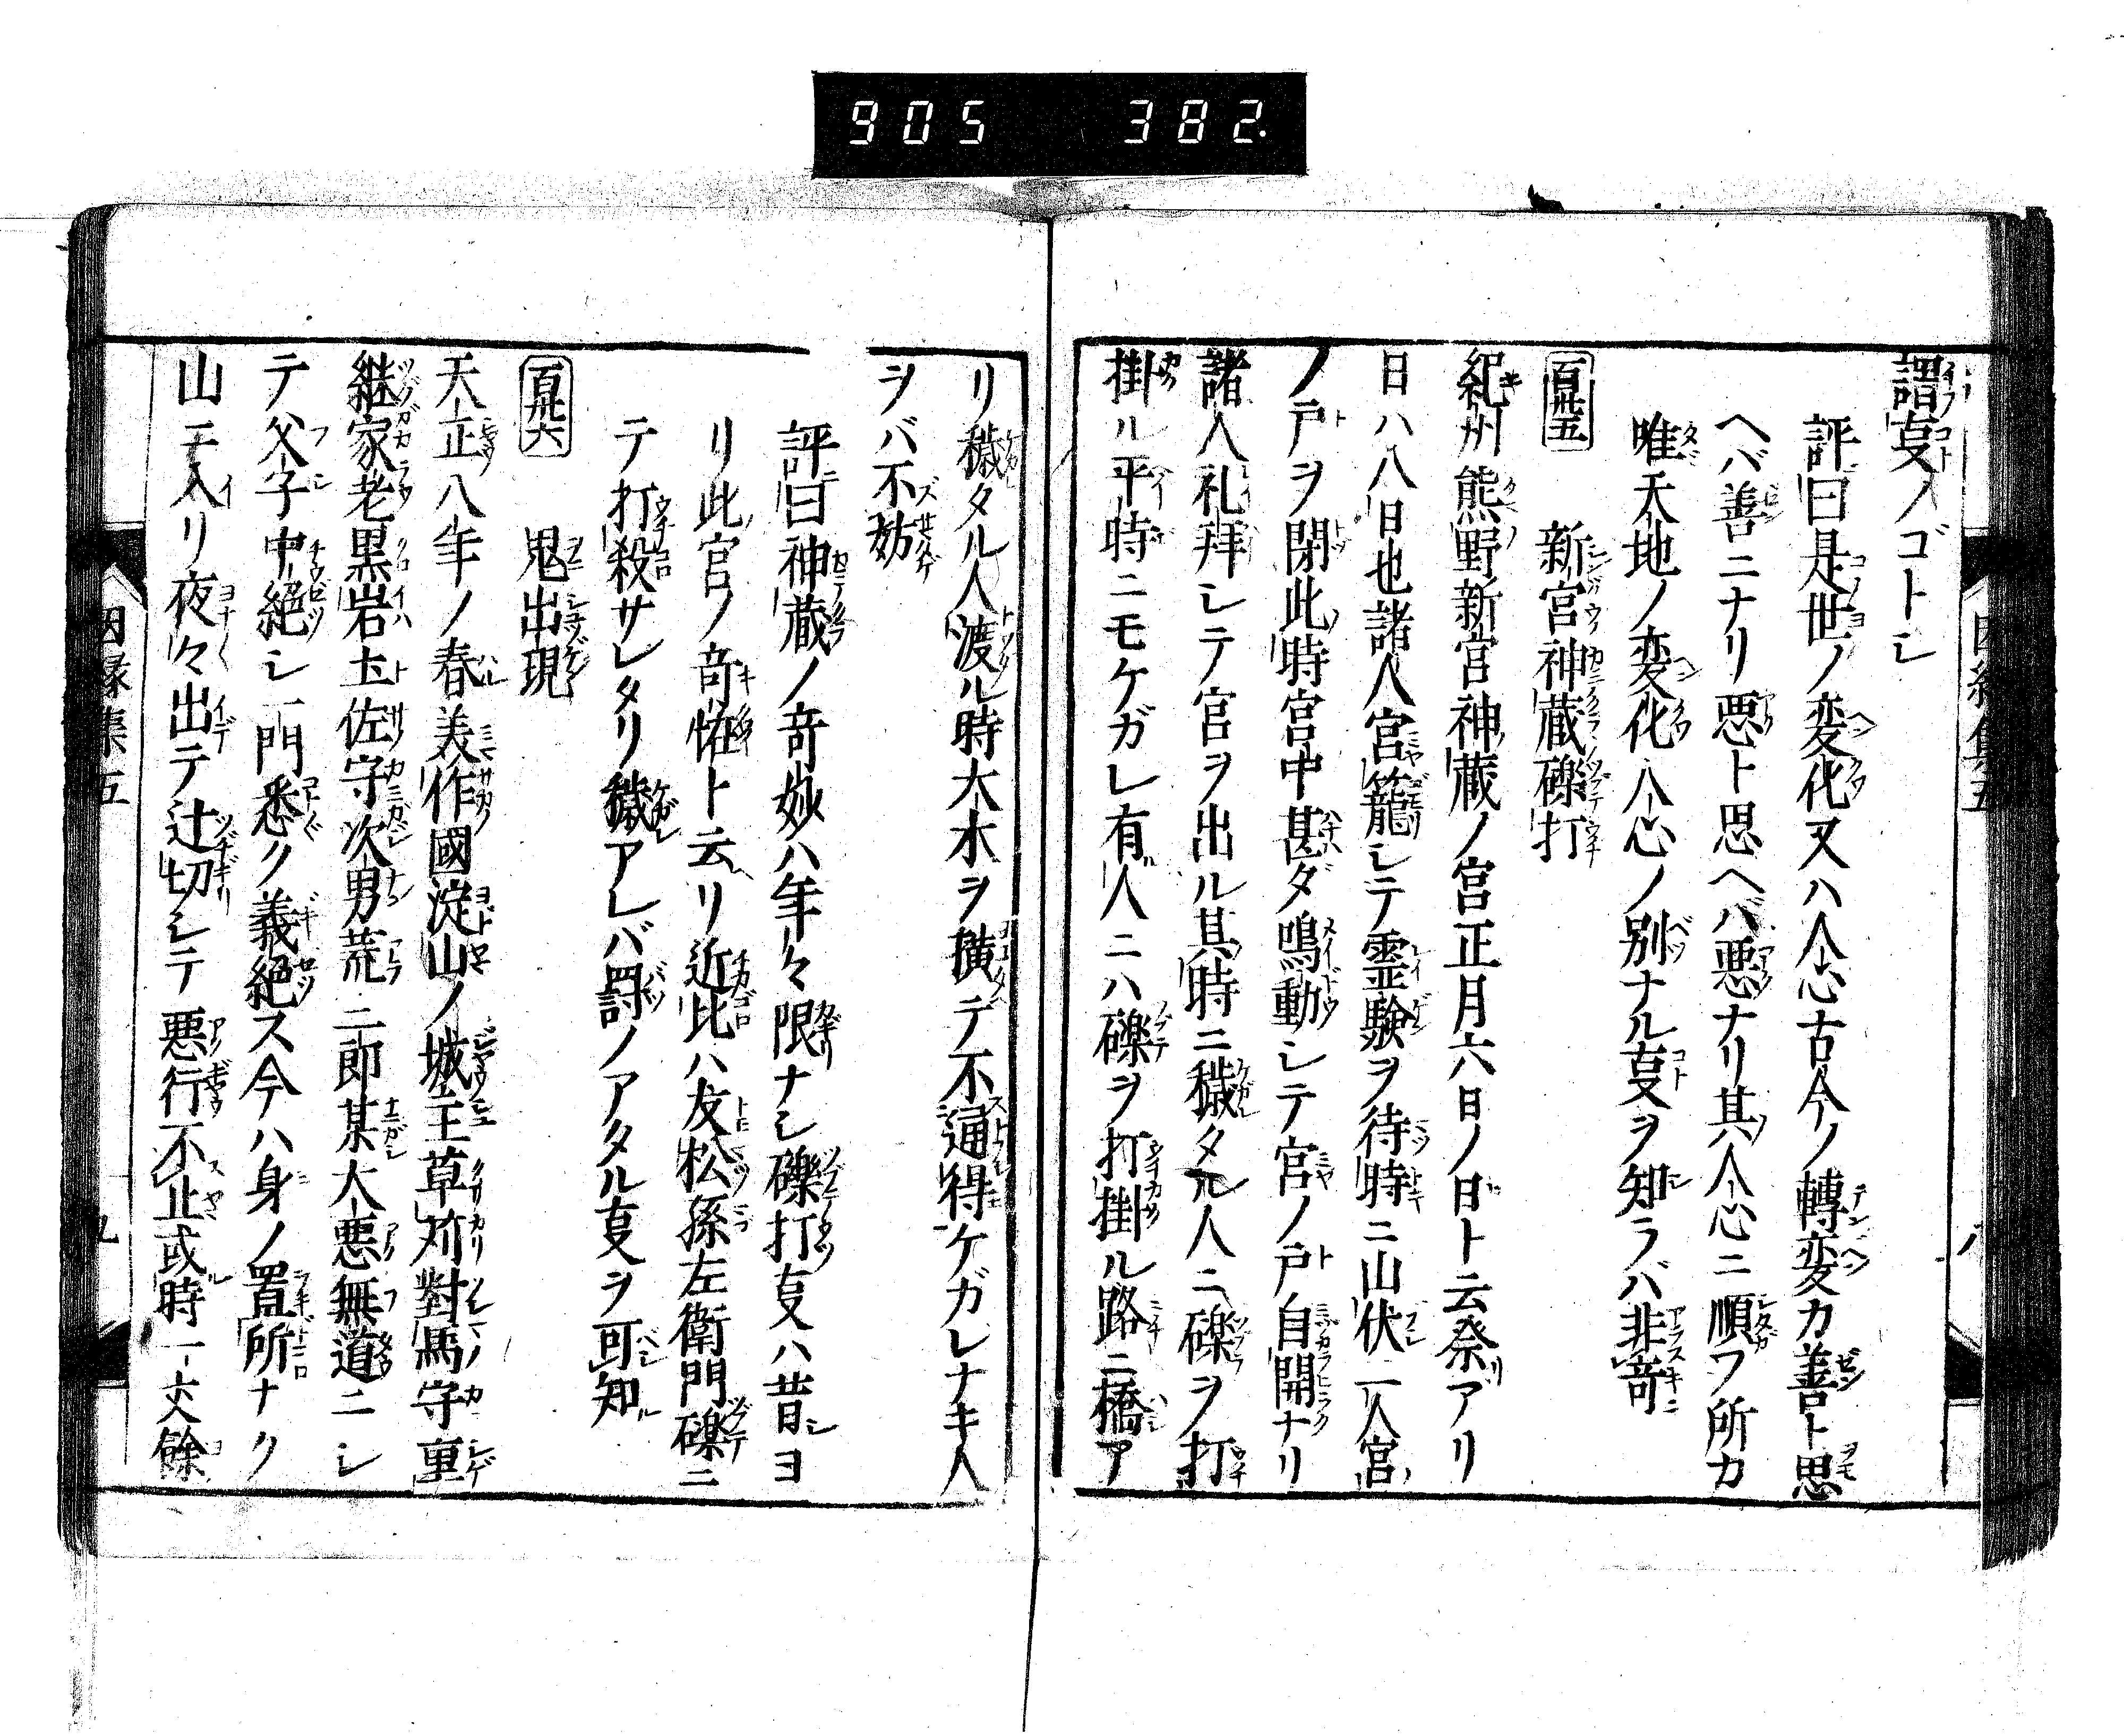 905 382.
謂叓ノゴトシ
評曰是世ノ変化又ハ人心古今ノ轉変カ善ト思
ヘバ善ニナリ悪ト思ヘバ悪ナリ其人心ニ順フ所カ
唯天地ノ変化人心ノ別ナル叓ヲ知ラバ非竒
百卅五 新宮神蔵礫打
紀州熊野新宮神蔵ノ宮正月六日ノ日ト云祭アリ
日ハ八日也諸人宮籠シテ霊験ヲ待時ニ山伏一人宮
ノ戸ヲ閉此時宮中甚ダ鳴動シテ宮ノ戸自開ナリ
諸人礼拜シテノ宮ヲ出ル其時ニ穢タル人ニ礫ヲ打
掛ル平時ニモケガレ有人ニハ礫ヲ打掛ル路ニ橋ア
因縁集五 八
リ穢タル人渡ル時大木ヲ横テ不通得ケガレナキ人
ヲバ不妨
評曰神蔵ノ竒妙ハ年々限ナシ礫打叓ハ昔ヨ
リ此宮ノ竒怪ト云リ近比ハ友松孫左衛門礫ニ
テ打殺サレタリ穢アレバ罸ノアタル叓ヲ可知
百卅六 鬼出現
天正八年ノ春美作國淀山ノ城主草苅對馬守重
継家老黒岩土佐守次男荒二郎某大悪無道ニシ
テ父子中絶シ一門悉ク義絶ス今ハ身ノ置所ナク
山エ入リ夜々出テ辻切シテ悪行不止或時一丈餘
因縁集五 九